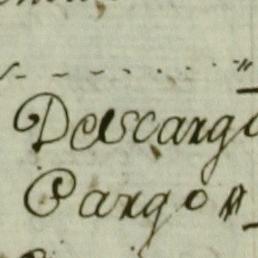 Descargo
Cargo